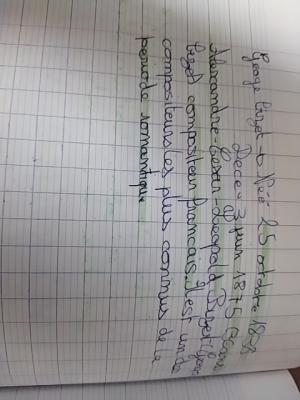 George bizet → Née 25 octobre 1838
Decée 3 juin 1875
Alexandre-César-Léopold Bizet
bizet compositeur francais. Il est un de
compositeurs les plus connus de la
période romantique